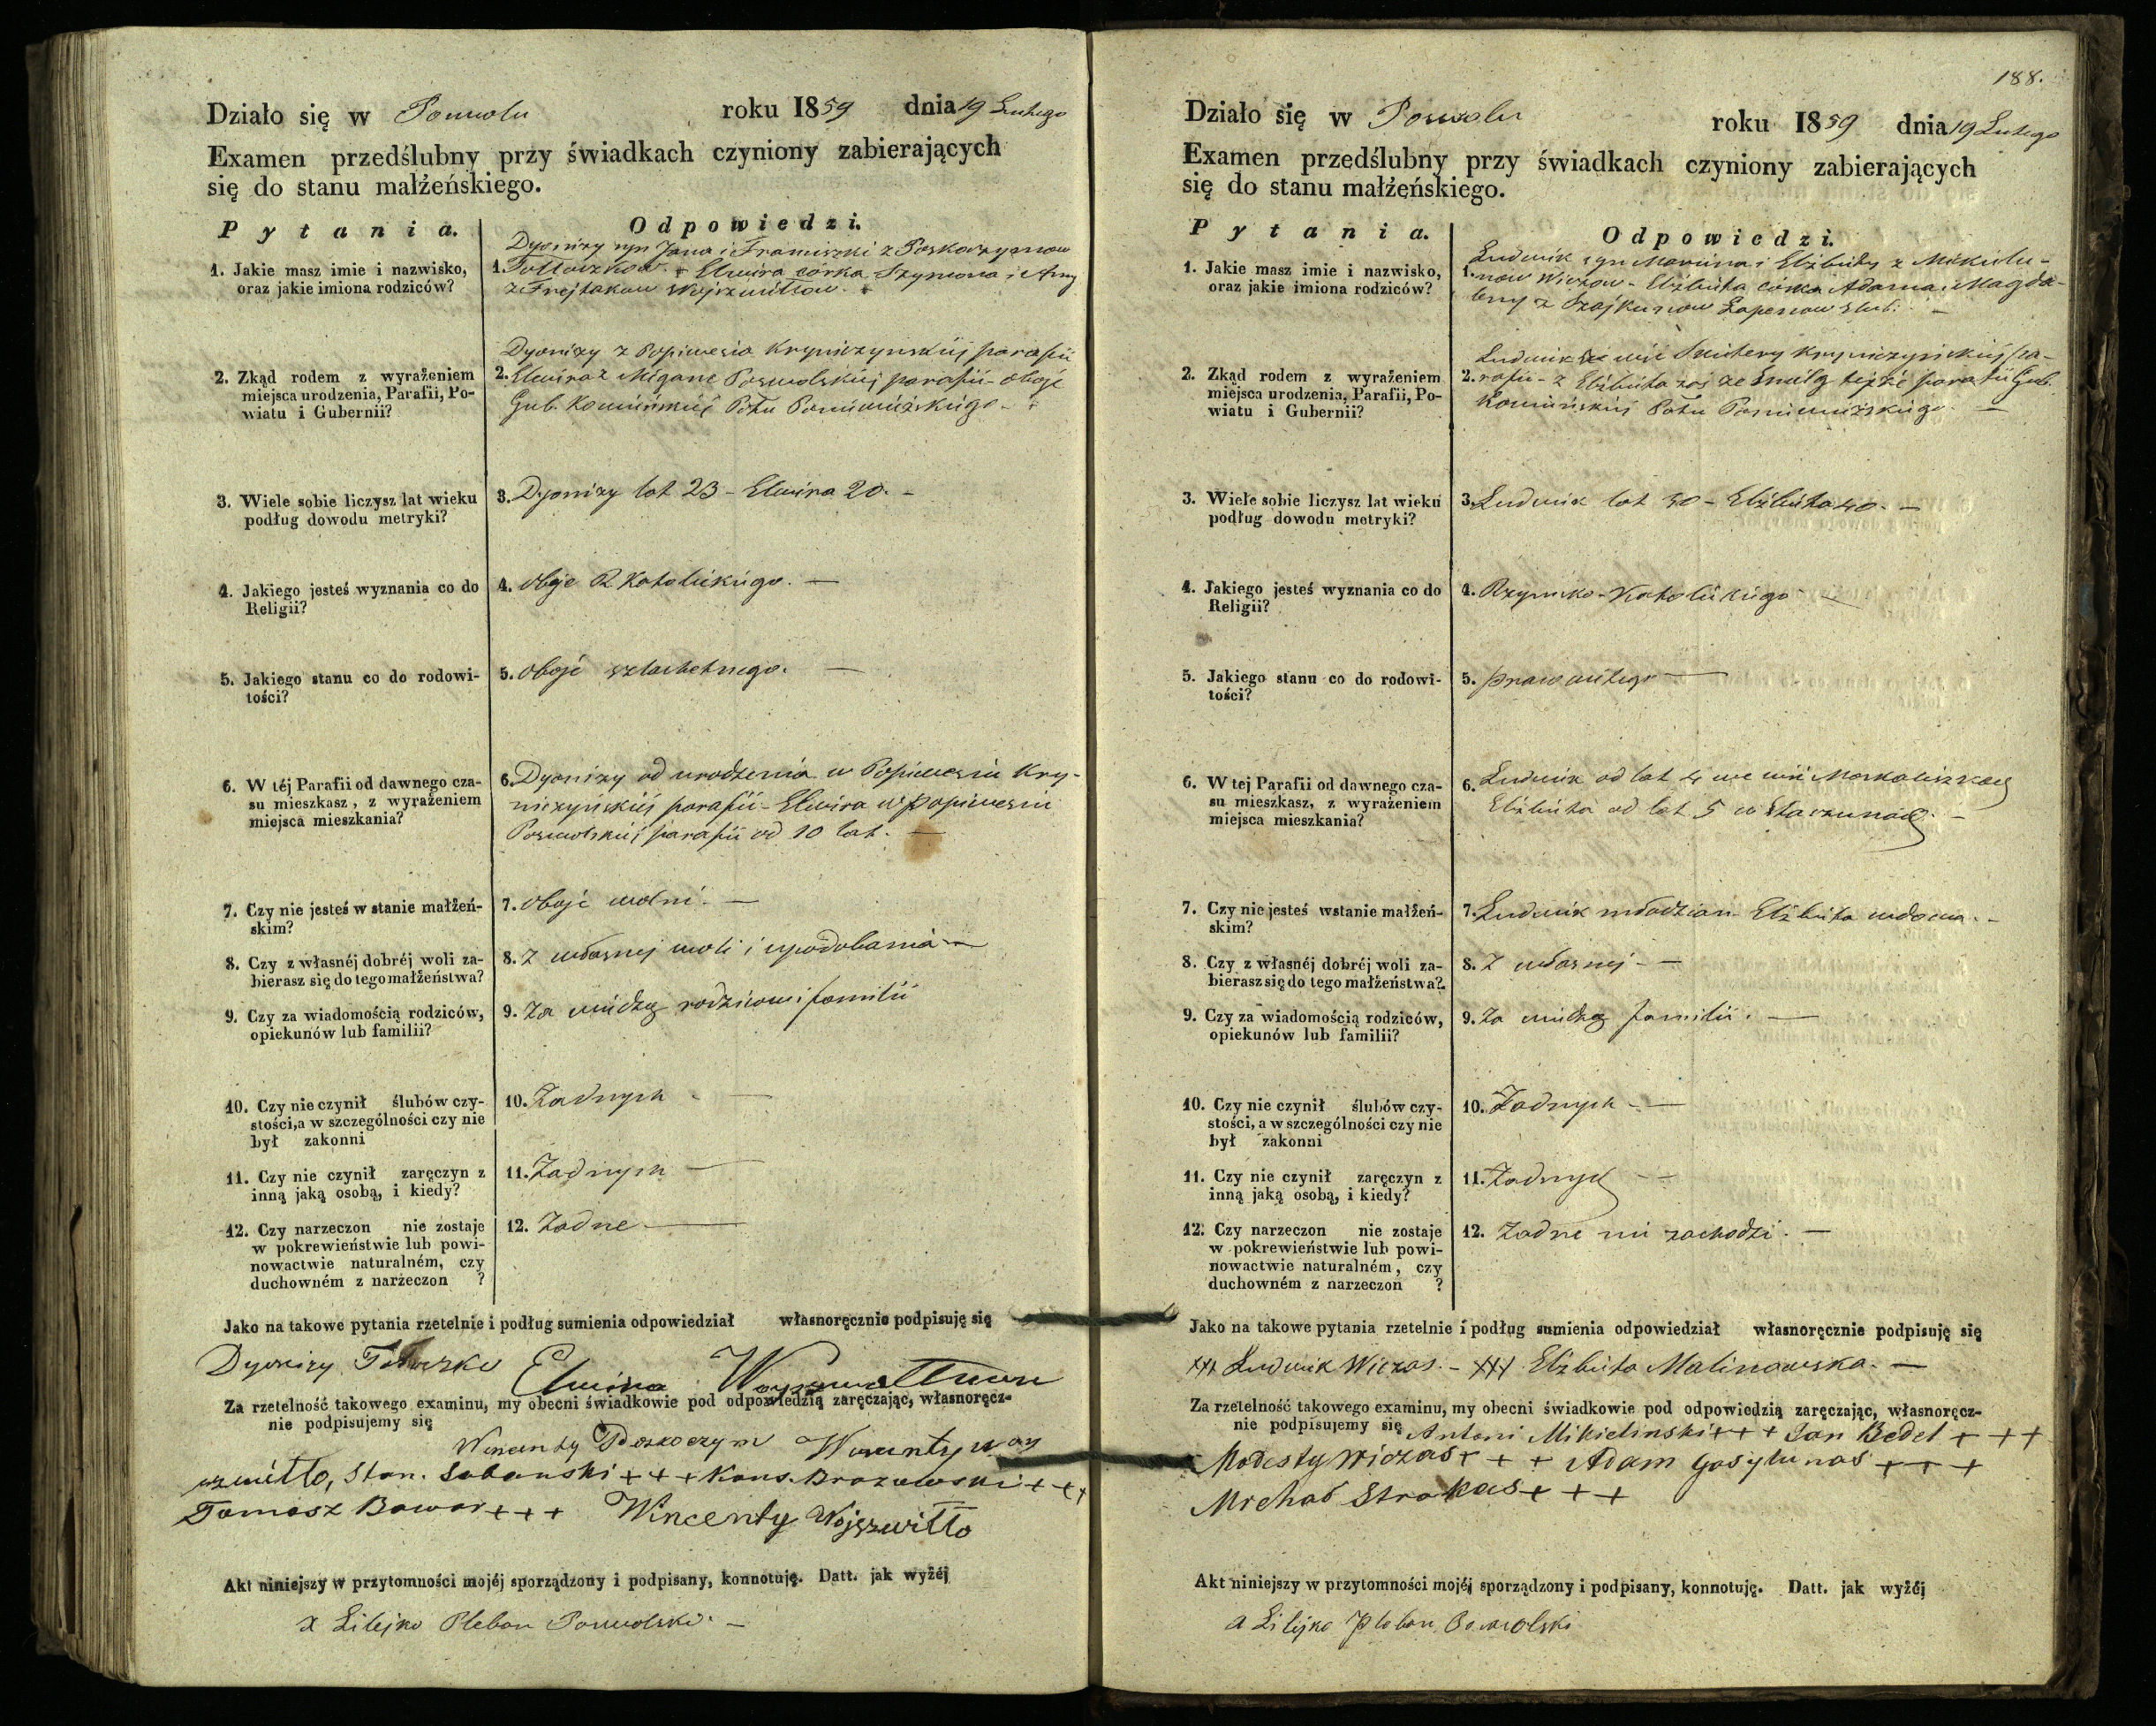 Działo się w Poswolu roku 1859 dnia 19 Lutego
Examen przedślubny przy świadkach czyniony zabierających
się do stanu małżeńskiego.
Pytania. Odpowiedzi.
1. Jakie masz imie i nazwisko,
oraz jakie imiona rodziców?
1. Dyonizy syn Jana i Franciszki z Poskoczymow
Tołłoczkow. Elwira córka Szymona i Anny
z Frejtakow Wojszwiłłow.
2. Zkąd rodem z wyrażeniem
miejsca urodzenia, Parafii, Po-
wiatu i Gubernii?
Dyonizy z Popiwesia Kryniczynskiej parafii
2. Elwira z Migane Poswolskiej parafii - oboje
Gub. Kowieńskiej Pttu Poniewieżskiego
3. Wiele sobie liczysz lat wieku
podług dowodu metryki?
3. Dyonizy lat 23 - Elwira 20. -
4. Jakiego jesteś wyznania co do
Religii?
4. oboje R. Katolickiego. —
5. Jakiego stanu co do rodowi-
tości?
5. oboje szlachetnego. —
6. W téj Parafii od dawnego cza-
su mieszkasz, z wyrażeniem
miejsca mieszkania?
6. Dyonizy od urodzenia w Popiwesiu Kry-
niczyńskiej parafii - Elwira w Popiwesiu
Poswolskiej parafii od 10 lat. —
7. Czy nie jesteś w stanie małżeń-
skim?
7. oboje wolni. —
8. Czy z własnéj dobréj woli za-
bierasz się do tego małżeństwa?
8. Z własnej woli i upodobania —
9. Czy za wiadomością rodziców,
opiekunów lub familii?
9. Za wiedzą rodzicow i familii
10. Czy nie czynił ślubów czy-
stości, a w szczególności czy nie
był zakonni
10. Żadnych —
11. Czy nie czynił zaręczyn z
inną jaką osobą, i kiedy?
11. Żadnych —
12. Czy narzeczon nie zostaje
w pokrewieństwie lub powi-
nowactwie naturalném, czy
duchowném z narzeczon ?
12. Żadne —
Jako na takowe pytania rzetelnie i podług sumienia odpowiedział własnoręcznie podpisuję się
Dyonizy Tołłoczko Elwira
Za rzetelność takowego examinu, my obecni świadkowie pod odpowiedzią zaręczając, własnoręcz-
nie podpisujemy się
Wincenty Poskoczym Wincenty Woy
szwiłło, Stan. Sobanski +++ Kons. Brazowski +++
Tomasz Bowar +++ Wincenty Wojszwiłło
Akt niniejszy w przytomności mojéj sporządzony i podpisany, konnotuję. Datt. jak wyżéj
X Lilejko Pleban Poswolski. —
188.
Działo się w Poswolu roku 1859 dnia 19 Lutego
Examen przedślubny przy świadkach czyniony zabierających
się do stanu małżeńskiego.
Pytania. Odpowiedzi.
1. Jakie masz imie i nazwisko,
oraz jakie imiona rodziców?
Ludwik syn Marcina i Elżbiety z Mikielu-
1. now Wiczow - Elżbieta córka Adama i Magda-
leny z Szajkunow Łapenow
2. Zkąd rodem z wyrażeniem
miejsca urodzenia, Parafii, Po-
wiatu i Gubernii?
Ludwik ze wsi Kryniczyńskiej pa-
2. rafii - Elżbieta zaś ze tejże parafii Gub.
Kowieńskiej Pttu Poniewieżskiego. —
3. Wiele sobie liczysz lat wieku
podług dowodu metryki?
3. Ludwik lat 30 - Elżbieta 40. —
4. Jakiego jesteś wyznania co do
Religii?
4. Rzymsko-Katolickiego —
5. Jakiego stanu co do rodowi-
tości?
5. prawowitego —
6. W tej Parafii od dawnego cza-
su mieszkasz, z wyrażeniem
miejsca mieszkania?
6. Ludwik od lat 4 we wsi Moskaliszkach
Elżbieta od lat 5 w Staczunach. —
7. Czy nie jesteś wstanie małżeń-
skim?
7. Ludwik młodzian Elżbieta wdowa. -
8. Czy z własnéj dobréj woli za-
bierasz się do tego małżeństwa?
8. Z własnej - —
9. Czy za wiadomością rodziców,
opiekunów lub familii?
9. Za wiedzą familii. —
10. Czy nie czynił ślubów czy-
stości, a w szczególności czy nie
był zakonni
10. Żadnych - —
11. Czy nie czynił zaręczyn z
inną jaką osobą, i kiedy?
11. Żadnych —
12. Czy narzeczon nie zostaje
w pokrewieństwie lub powi-
nowactwie naturalném, czy
duchowném z narzeczon ?
12. Żadne nie zachodzi. —
Jako na takowe pytania rzetelnie i podług sumienia odpowiedział własnoręcznie podpisuję się
+++ Ludwik Wiczas. - +++ Elżbieta Malinowska. —
Za rzetelność takowego examinu, my obecni świadkowie pod odpowiedzią zaręczając, własnoręcz-
nie podpisujemy się Antoni Mikielinski +++ Jan Bedel +++
Modesty Wiczas +++ Adam Gasylunas +++
Michał Strakas +++
Akt niniejszy w przytomności mojéj sporządzony i podpisany, konnotuję. Datt. jak wyżéj
X Lilejko Pleban Poswolski